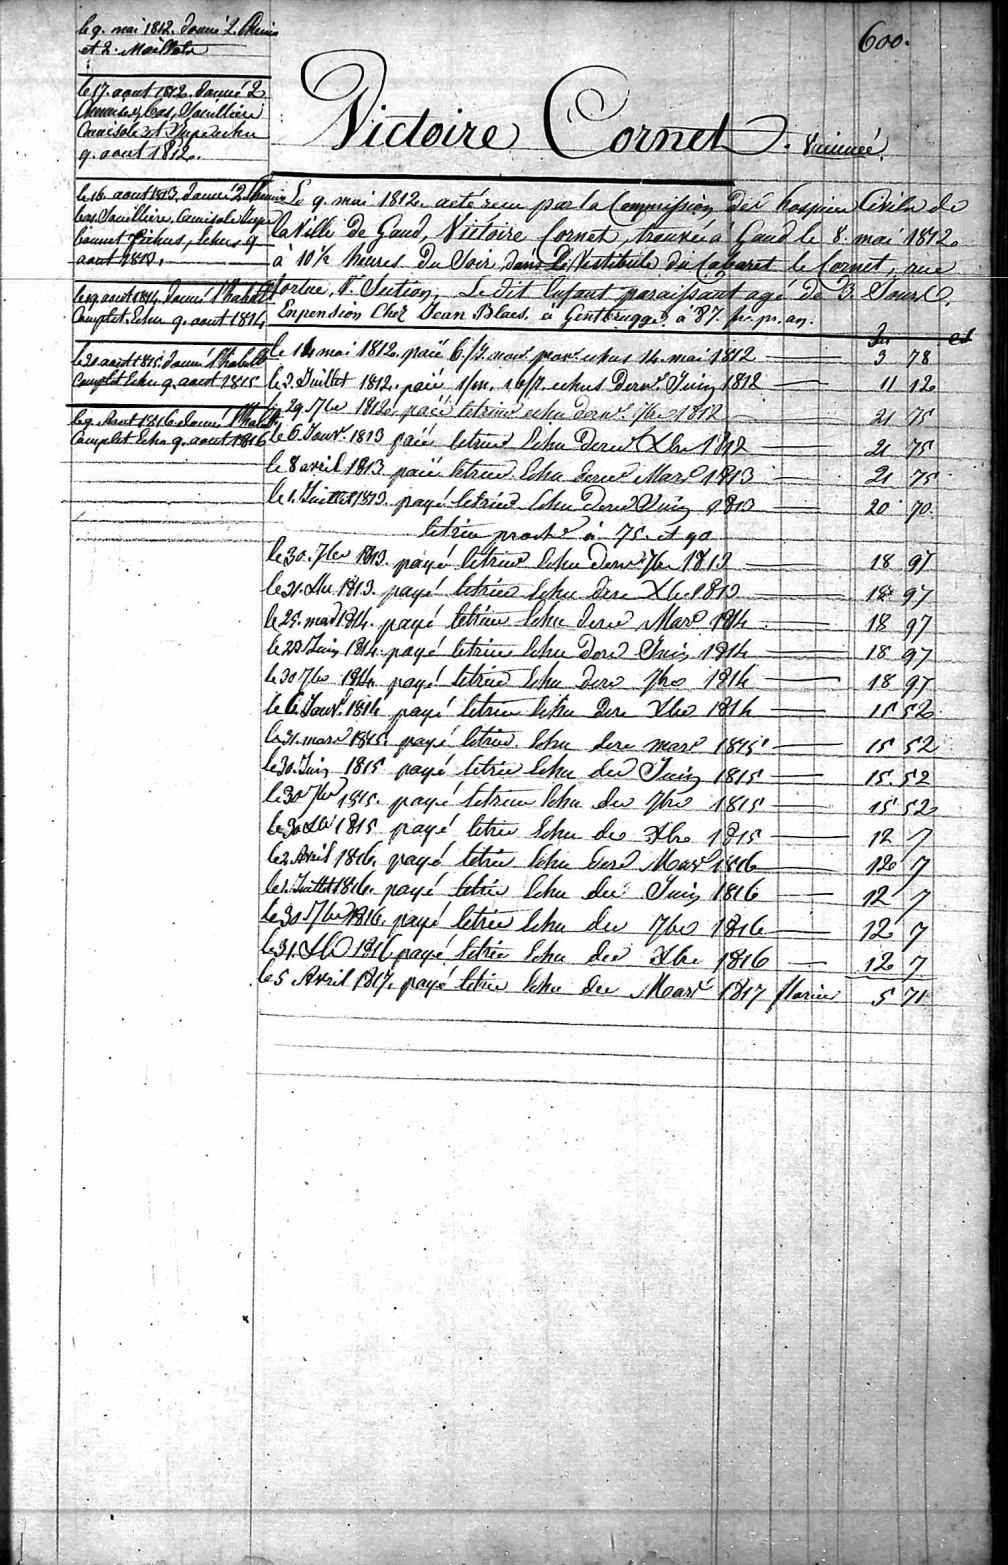 600.
Victoire Cornet. Vaccinée.
le 9. mai 1812. donné 2. Chemis
et 2. Maillots
le 17. aout 1812. donné 2
Chemises, bas,
Camisole et Jupe echu
9. aout 1812.
le 16. aout 1813. donné 2. Chemis
bas, Camisole Jupe
bonnet fichus, echus 9
aout 1813.
le 19 aout 1814. donné l'habill
Complet. Echu 9. aout 1814.
le 21 aout 1815. donné l'habill
Complet Echu 9. aout 1815
le 9. Aout 1816. donné l'habill
Complet Echu 9. aout 1816
Le 9. mai 1812. a été reçu par la Commission des hospices Civils de
la Ville de Gand, Victoire Cornet, trouvée à Gand le 8. mai 1812.
à 10½ heures du Soir, dans le Vestibule du Cabaret le Cornet, rue
tortue, Section. Le dit Enfant paraissant agé de 3. Jours.
En pension Chez Jean Blaes, à Gentbrugge à 87. fr. pr. an.
le 14 mai 1812. paié 6/7. echus 14. mai 1812 3 78
le 3. Juillet 1812. paié echus dern. Juin 1812 11 12
29. 7bre 1812. paié letrim echu dern. 7bre 1812 21 75
le 6 Janv. 1813 paié letrim Echu dern Xbre 1812 21 75
le 8 avril 1813. paié letrim. Echu dern Mars 1813 21 75
le 1. Juillet 1813. payé letrim Echu dern Juin 1813 20 70
letrim proch à 75. et 90
le 30. 7bre 1813. payé letrim Echu dern 7bre 1813 18 97
le 31. Xbre 1813. payé letrim Echu dern Xbre 1813 18 97
le 25. mars 1814. payé letrim Echu dern Mars 1814 18 97
le 28 Juin 1814. payé letrim Echu dern Juin 1814 18 97
le 30 7bre 1814. payé letrim Echu dern 7bre 1814 18 97
le 6 Janv. 1814 payé letrim Echu dern Xbre 1814 15 52
le 31. mars 1815. payé letrim. Echu dern mars 1815 15 52
le 30. Juin 1815 payé letrim Echu der Juin 1815 15. 52
le 30 7bre 1815. payé letrim Echu der 7bre 1815 15 52
le 30 Xbre 1815 payé letrim Echu de Xbre 1815 12 7
le 2. Avril 1816. payé letrim Echu dern Mars 1816 12 7
le 1. Juillet 1816. payé letrim Echu der Juin 1816 12 7
le 30. 7bre 1816. payé letrim Echu der 7bre 1816 12 7
le 31. Xbre 1816 payé letrim Echu der Xbre 1816 12 7
le 5 Avril 1817. payé letrim Echu der Mars 1817 florins 5 71